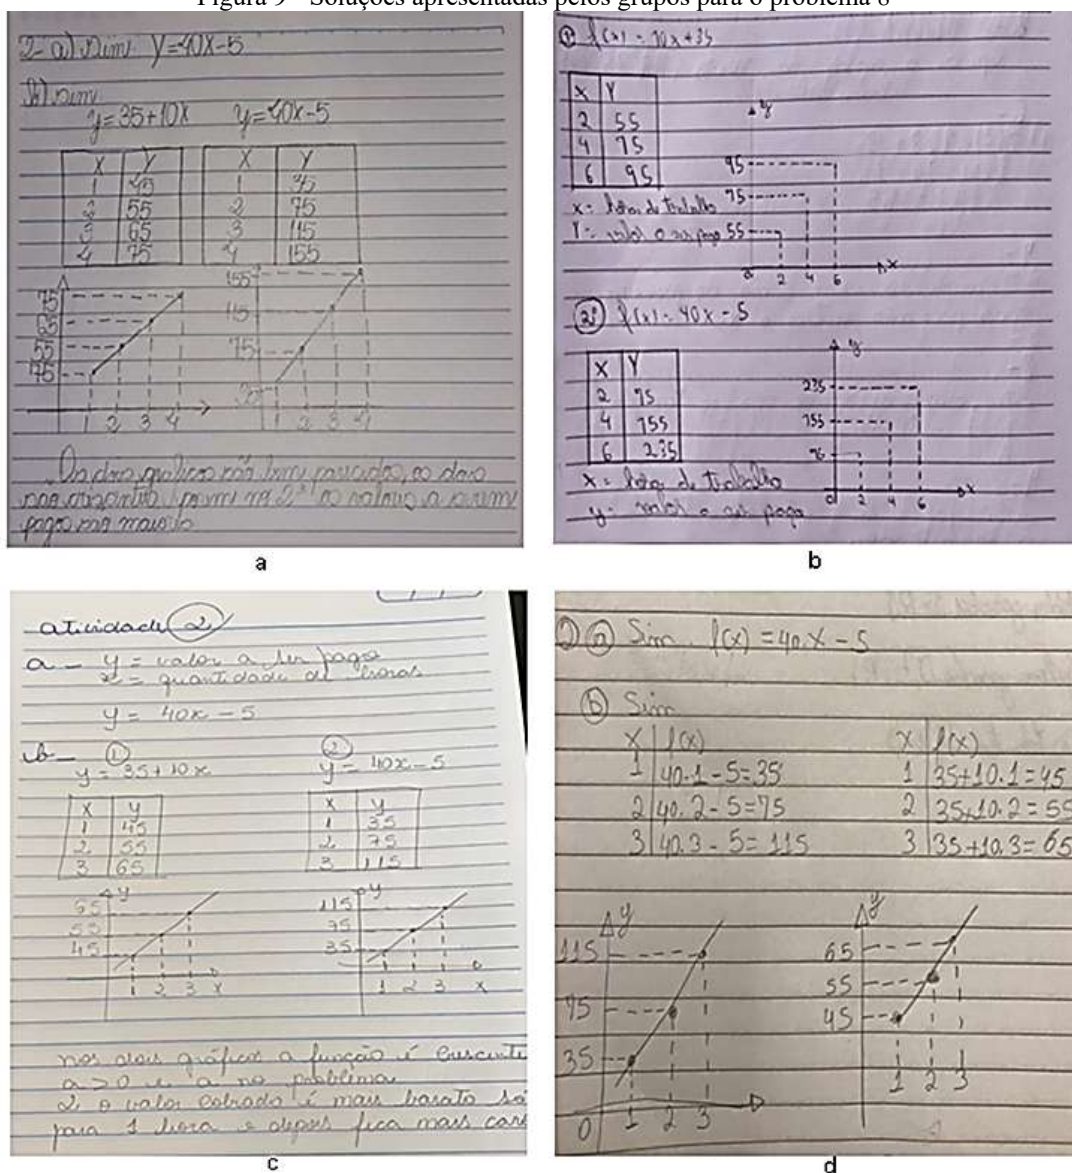 Figura 9 - Soluções apresentadas pelos grupos para o problema 8
2- a) Sim y=40x-5
b) Sim
y=35+10x y=40x-5
X Y X Y
1 45 1 35
2 55 2 75
3 65 3 115
4 75 4 155
75
65
55
1 2 3 4
155
115
75
1 2 3 4
Os dois gráficos são bem parecidos, os dois
são na 2ª os valores a serem
pagos são maiores
a
① f(x) = 10x+35
X Y
2 55
4 75
6 95
x= hora de trabalho
Y= valor a ser pago
y
95
75
55
0 2 4 6 x
f(x) = 40x - 5
X Y
2 75
4 155
6 235
x = hora de trabalho
y= valor a ser pago
y
235
155
0 2 4 6 x
b
atividade 2
a - y = valor a ser pago
x = quantidade de horas
y = 40x - 5
b- ① ②
y = 35 + 10x y = 40x - 5
X y X y
1 45 1 35
2 55 2 75
3 65 3 115
y
65
55
45
1 2 3 x
y
115
75
35
1 2 3 x
nos dois gráficos a função é crescente
a > 0 e a no problema
2 o valor cobrado é mais barato só
para 1 hora e depois fica mais caro
c
a Sim f(x) = 40.x - 5
b Sim
X f(x) X f(x)
1 40.1 - 5 = 35 1 35+10.1 = 45
2 40.2 - 5 = 75 2 35+10.2 = 55
3 40.3 - 5 = 115 3 35+10.3 = 65
y
115
75
35
0 1 2 3
y
65
55
45
1 2 3
d